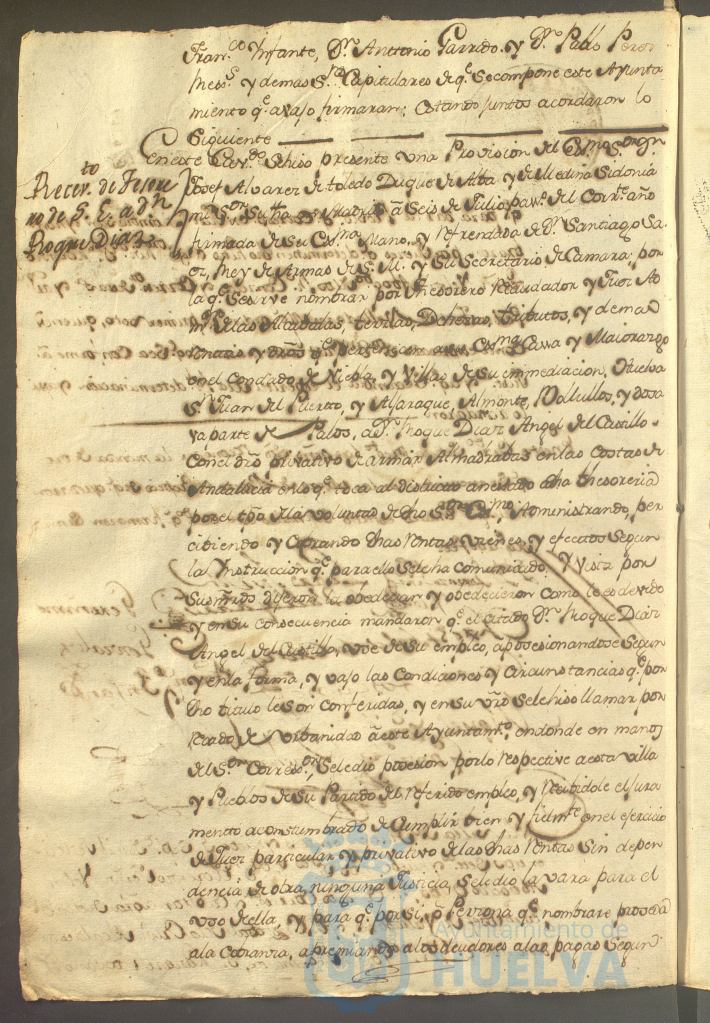 Fran.co Infante, Dn. Antonio Garrido, y Dn. Pablo Perez
y demas S.res Capitulares de q.e se compone este Ayunta
miento q.e avajo firmaran; estando juntos acordaron lo
Siguiente
Reciv.to de Tesore
ro de S. E. a Dn.
Roque Diaz
En este Cav.do se hiso presente una Provision del Exmo. S.or Dn.
Josef Alvarez de toledo Duque de Alba, y de Medina Sidonia
mi S.or su fha. en Madrid à Seis de Julio pas.do del Corr.te año
firmada de Su Ex.ma Mano, y refrendada de Dn. Santiago Sa
ez, Rey de Armas de S. M. y Su Secretario de Camara; por
la q.e se sirve nombrar por Thesorero Recaudador y Juez
de las Alcabalas, tercias, Dehesas, tributos, y demas
Rentas y dros q.e pertenecen a su Ex.ma Casa y Maiorazgo
en el Condado de Niebla y Villas de su immediacion, Huelva
Sn. Juan del Puerto, y Aljaraque, Almonte, Bollullos, y dosa
va parte de Palos, a Dn. Roque Diaz Angel del Castillo
con el dro privativo de armar Almadrabas en las costas de
Andalucia en lo q.e toca al distrito anexado a dha thesoreria
por el tpo de la voluntad de dho S.or Ex.mo, Administrando, per
cibiendo y Cobrando dhas Rentas, vienes, y efectos segun
la Instruccion q.e para ello se le ha comunicado, y vista por
Sus mrds dijeron la obedecian y obedecieron como les es devido
y en su consecuencia mandaron q.e el citado Dn. Roque Diaz
Angel del Castillo, use de su empleo, aposesionandose segun
y en la forma, y vajo las Condiciones y Circunstancias q.e por
dho titulo le son conferidas, y en su vrd se le hiso llamar por
recado de urbanidad à este Ayuntam.to en donde en manos
del S.or Correg.or se le dio posesion por lo respective a esta villa
y Pueblos de su Partido del referido empleo, y recibidole el jura
mento acostumbrado de Cumplir bien y fielm.te en el ejercicio
de Juez particular y privativo de las dhas Rentas sin depen
dencia de otra ninguna Justicia, se le dio la vara para el
uso de ella, y para q.e por si, o Persona q.e nombrare proseda
a la Cobranza, apremiando a los deudores a las pagas segun
Ayuntamiento de
HUELVA